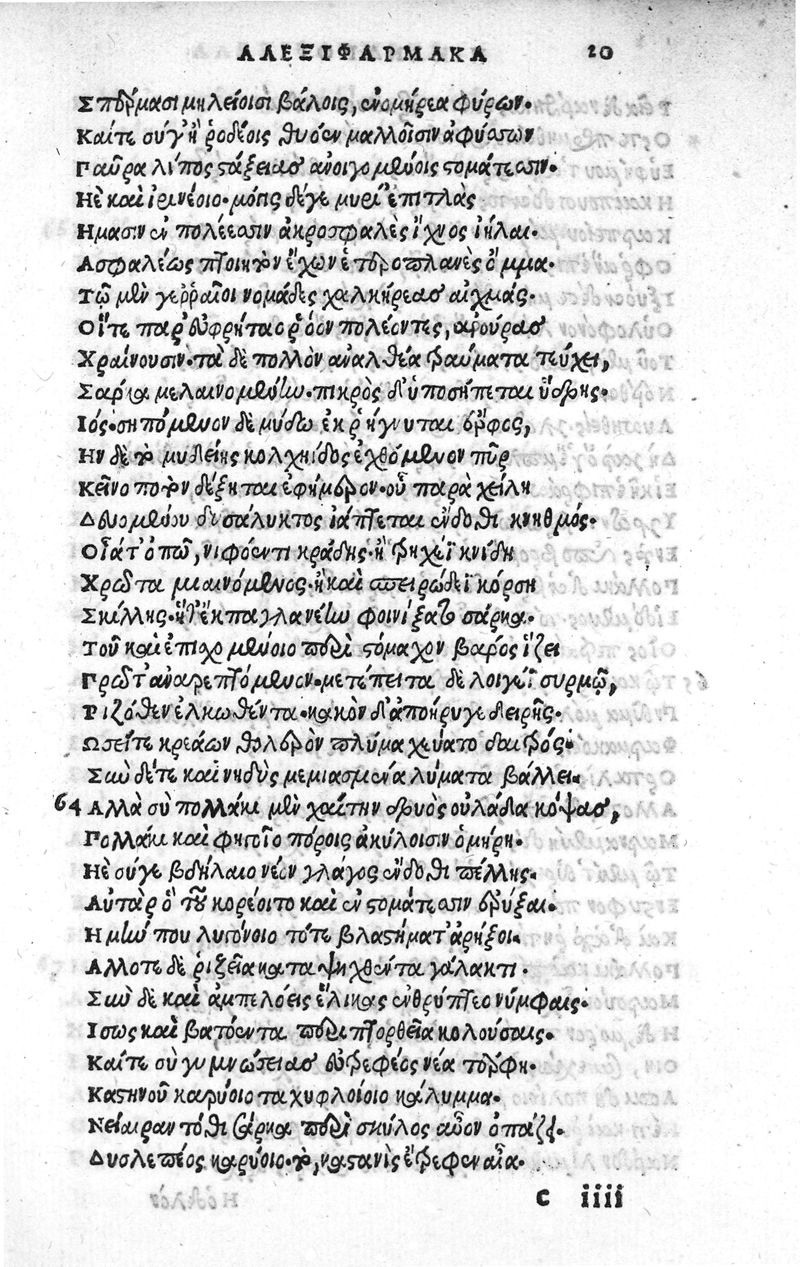 ΑΛΕΞΙΦΑΡΜΑΚΑ 20
Σπέρμασι μηλείοισι βάλοις, ἐνομήρεα φύρων.
Καί τε σύγ' ἢ ῥοδέοις θυόεν μαλλοῖσιν ἀφύσσων
Γαῦρα λίπος στάξειας ἀνοιγομένοις στομάτεσσιν.
Ηὲ καὶ ἰρινέοιο. μόγις δέ γε μυρί' ἐπιτλὰς
Ημασιν ἐν πολέεσσιν ἀκροσφαλὲς ἴχνος ἰήλαι.
Ασφαλέως πτοιητὸν ἔχων ἑτεροπλανὲς ὄμμα.
Τῷ μὲν γεῤῥαῖοι νομάδες χαλκήρεας αἰχμάς.
Οἵ τε παρ' εὐφρήταο ῥόον πολέοντες, ἀρούρας
Χραίνουσιν. τὰ δὲ πολλὸν ἀναλθέα τραύματα τεύχει,
Σάρκα μελαινομένην. πικρὸς δ' ὑποσήπεται ὕδρης.
Ιός. σηπόμενον δὲ μύδῳ ἐκρήγνυται ἔρφος,
Ην δὲ τὸ μηδείης κολχηίδος ἐχθόμενον πῦρ
Κεῖνο ποτὸν δέξηται ἐφήμερον. οὗ παρὰ χείλη
Δευομένου δυσάλυκτος ἰάπτεται ἔνδοθι κνηθμός.
Οἷά τ' ὀπῷ, νιφόεντι κράδης. ἢ τρηχέϊ κνίδη
Χρῶτα μιαινόμενος. ἢ καὶ σπειρώδεϊ κόρση
Σκίλλης. ἥ τ' ἔκπαγλα νέην φοινίξατο σάρκα.
Τοῦ καὶ ἐπιχομένοιο περὶ στόμαχον βαρὸς ἵζει
Πρῶτ' ἀναρεπτόμενον. μετέπειτα δὲ λοιγέϊ συρμῷ,
Ριζόθεν ἑλκωθέντα. κακὸν δ' ἀποήρυγε δειρῆς.
Ωσεί τε κρεάων θολερὸν πλύμα χεύατο δαιτρός.
Σὺν δέ τε καὶ νηδὺς μεμιασμένα λύματα βάλλει.
64 Αλλὰ σὺ πολλάκι μὲν χαίτην δρυὸς οὐλάδα κόψας,
Πολλάκι καὶ φηγοῖο πόροις ἀκύλοισιν ὁμήρη.
Ηὲ σύγε βδήλαιο νέον γλάγος ἔνδοθι πέλλης.
Αὐτὰρ ὁ τοῦ κορέοιτο καὶ ἐν στομάτεσσιν ἐρύξαι.
Η μήν που λυγόνοιο τότε βλαστήματ' ἀρήξοι.
Αλλοτε δὲ ῥιζεῖα καταψηχθέντα γάλακτι.
Σὺν δὲ καὶ ἀμπελόεις ἕλικας ἐνθρύπτεο νύμφαις.
Ισως καὶ βατόεντα περὶ πτορθεῖα κολούσαις.
Καί τε σὺ γυμνώσειας εὐτρεφέος νέα τέρφη.
Καστηνοῦ καρύοιο ταχυφλοίοιο κάλυμμα.
Νείαιραν τόθι σάρκα περὶ σκύλος αὖον ὀπάζει.
Δυσλεπέος καρύοιο. τὸ, καστανὶς ἔτρεφεν αἶα.
C iiii